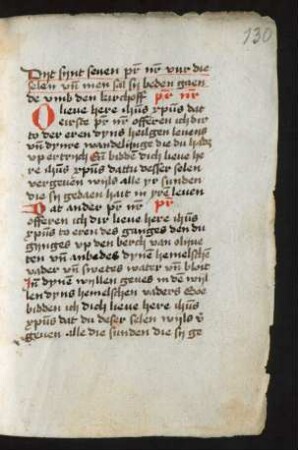 130
Dijt sijnt seuen pr̄ nr̄ vur die
selen vn̄ men sal sij beden gaen
de vmb den kirchoff pr̄ nr̄
O lieue here ihūs xp̄us dat
eirste pr̄ nr̄ offeren ich dir
to der eren dyns heilgen leuens
vn̄ dynre wandelinge die du hads
vp ertrijch En̄ bidde dich lieue he
re ihūs xp̄us dattu desser selen
vergeuen wijls alle yr sunden
die sij gedaen hait in yre leuen
Dat ander pr̄ nr̄ pr̄
offeren ich dir lieue here ihūs
xp̄us to eren des ganges den du
gijnges vp den berch van oliue
ten vn̄ anbedes dyne hemelsche
vader vn̄ swetes water vn̄ bloit
In dyne wijllen geues in de wijl
len dyns hemelschen vaders Soe
bidden ich dich lieue here ihūs
xp̄us dat du deser selen wijls v̄
geuen alle die sunden die sij ge